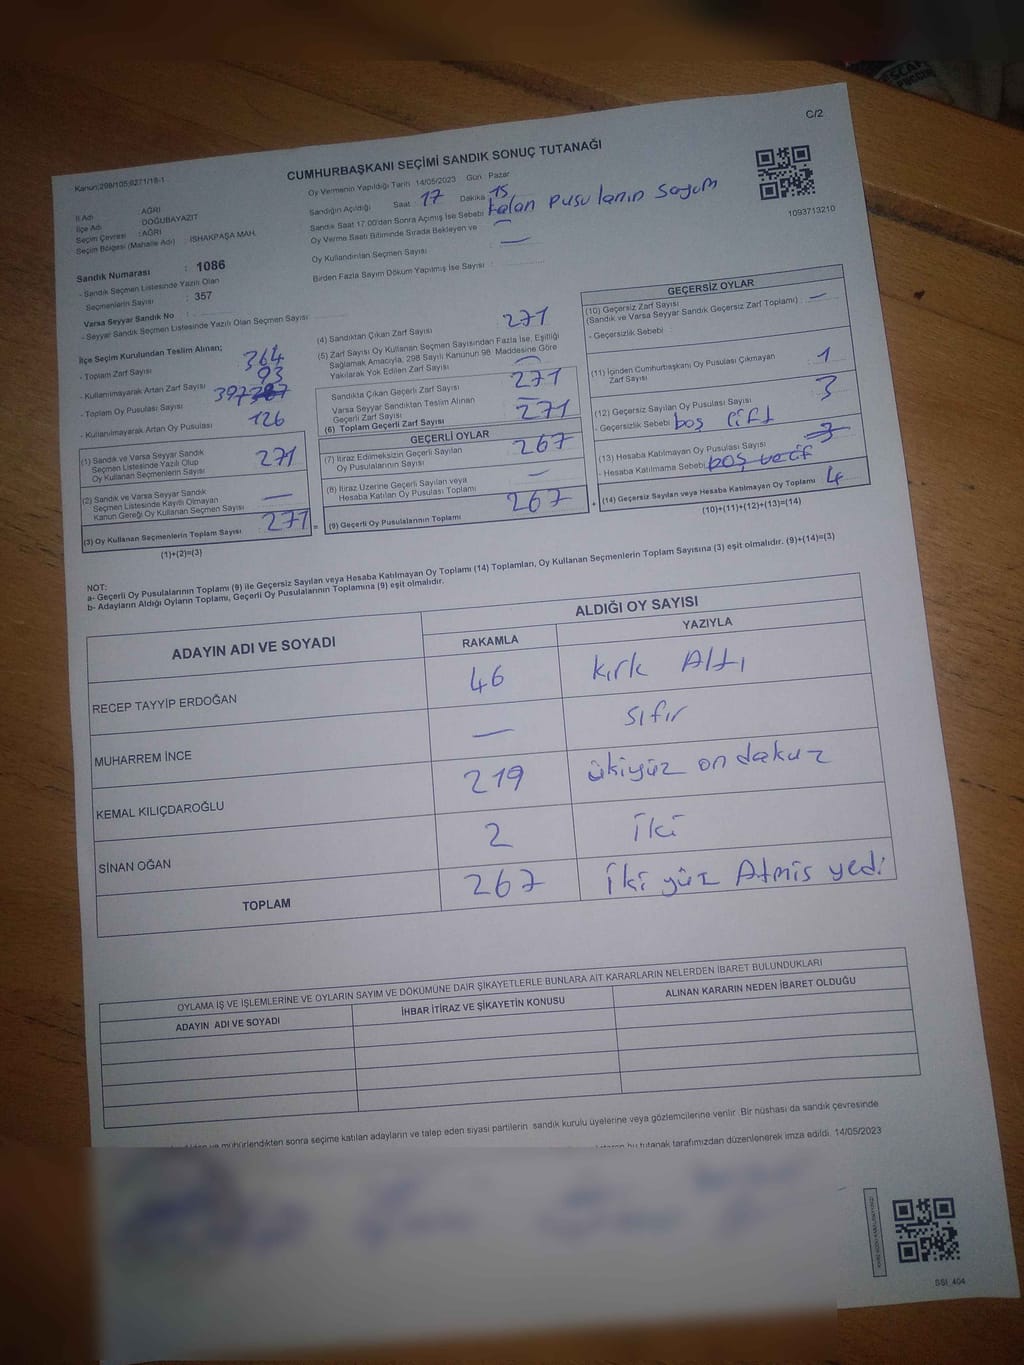 C/2
Kanun:298/105,6271/18-1
CUMHURBAŞKANI SEÇİMİ SANDIK SONUÇ TUTANAĞI
Oy Vermenin Yapıldığı Tarih 14/05/2023 Gün : Pazar
İl Adı : AĞRI
İlçe Adı : DOĞUBAYAZIT
Seçim Çevresi : AĞRI
Seçim Bölgesi (Mahalle Adı) : ISHAKPAŞA MAH.
Sandığın Açıldığı Saat : 17 Dakika : 15
Sandık Saat 17.00'dan Sonra Açımış İse Sebebi : kalan pusulanın sayım
Oy Verme Saati Bitiminde Sırada Bekleyen ve
Oy Kullandırılan Seçmen Sayısı : —
Birden Fazla Sayım Döküm Yapılmış İse Sayısı :
1093713210
Sandık Numarası : 1086
- Sandık Seçmen Listesinde Yazılı Olan
Seçmenlerin Sayısı : 357
Varsa Seyyar Sandık No :
- Seyyar Sandık Seçmen Listesinde Yazılı Olan Seçmen Sayısı :
İlçe Seçim Kurulundan Teslim Alınan;
- Toplam Zarf Sayısı : 364
- Kullanılmayarak Artan Zarf Sayısı : 93
- Toplam Oy Pusulası Sayısı : 397
- Kullanılmayarak Artan Oy Pusulası : 126
(1) Sandık ve Varsa Seyyar Sandık
Seçmen Listesinde Yazılı Olup
Oy Kullanan Seçmenlerin Sayısı : 271
(2) Sandık ve Varsa Seyyar Sandık
Seçmen Listesinde Kayıtlı Olmayan
Kanun Gereği Oy Kullanan Seçmen Sayısı : —
(3) Oy Kullanan Seçmenlerin Toplam Sayısı : 271 =
(1)+(2)=(3)
(4) Sandıktan Çıkan Zarf Sayısı : 271
(5) Zarf Sayısı Oy Kullanan Seçmen Sayısından Fazla İse, Eşitliği
Sağlamak Amacıyla, 298 Sayılı Kanunun 98. Maddesine Göre
Yakılarak Yok Edilen Zarf Sayısı : —
Sandıkta Çıkan Geçerli Zarf Sayısı : 271
Varsa Seyyar Sandıktan Teslim Alınan
Geçerli Zarf Sayısı : —
(6) Toplam Geçerli Zarf Sayısı : 271
GEÇERLİ OYLAR
(7) İtiraz Edilmeksizin Geçerli Sayılan
Oy Pusulalarının Sayısı : 267
(8) İtiraz Üzerine Geçerli Sayılan veya
Hesaba Katılan Oy Pusulası Toplamı : —
(9) Geçerli Oy Pusulalarının Toplamı : 267 +
GEÇERSİZ OYLAR
(10) Geçersiz Zarf Sayısı
(Sandık ve Varsa Seyyar Sandık Geçersiz Zarf Toplamı) : —
- Geçersizlik Sebebi :
(11) İçinden Cumhurbaşkanı Oy Pusulası Çıkmayan
Zarf Sayısı : 1
(12) Geçersiz Sayılan Oy Pusulası Sayısı : 3
- Geçersizlik Sebebi : boş çift
(13) Hesaba Katılmayan Oy Pusulası Sayısı : 3
- Hesaba Katılmama Sebebi : boş
(14) Geçersiz Sayılan veya Hesaba Katılmayan Oy Toplamı : 4
(10)+(11)+(12)+(13)=(14)
NOT:
a- Geçerli Oy Pusulalarının Toplamı (9) ile Geçersiz Sayılan veya Hesaba Katılmayan Oy Toplamı (14) Toplamları, Oy Kullanan Seçmenlerin Toplam Sayısına (3) eşit olmalıdır. (9)+(14)=(3)
b- Adayların Aldığı Oyların Toplamı, Geçerli Oy Pusulalarının Toplamına (9) eşit olmalıdır.
ADAYIN ADI VE SOYADI
ALDIĞI OY SAYISI
RAKAMLA YAZIYLA
RECEP TAYYİP ERDOĞAN 46 kırk Altı
MUHARREM İNCE — sıfır
KEMAL KILIÇDAROĞLU 219 ikiyüz on dokuz
SİNAN OĞAN 2 iki
TOPLAM 267 iki yüz Atmis yedi
OYLAMA İŞ VE İŞLEMLERİNE VE OYLARIN SAYIM VE DÖKÜMÜNE DAİR ŞİKAYETLERLE BUNLARA AİT KARARLARIN NELERDEN İBARET BULUNDUKLARI
ADAYIN ADI VE SOYADI İHBAR İTİRAZ VE ŞİKAYETİN KONUSU ALINAN KARARIN NEDEN İBARET OLDUĞU
ve mühürlendikten sonra seçime katılan adayların ve talep eden siyasi partilerin sandık kurulu üyelerine veya gözlemcilerine verilir. Bir nüshası da sandık çevresinde
bu tutanak tarafımızdan düzenlenerek imza edildi. 14/05/2023
SSI_404